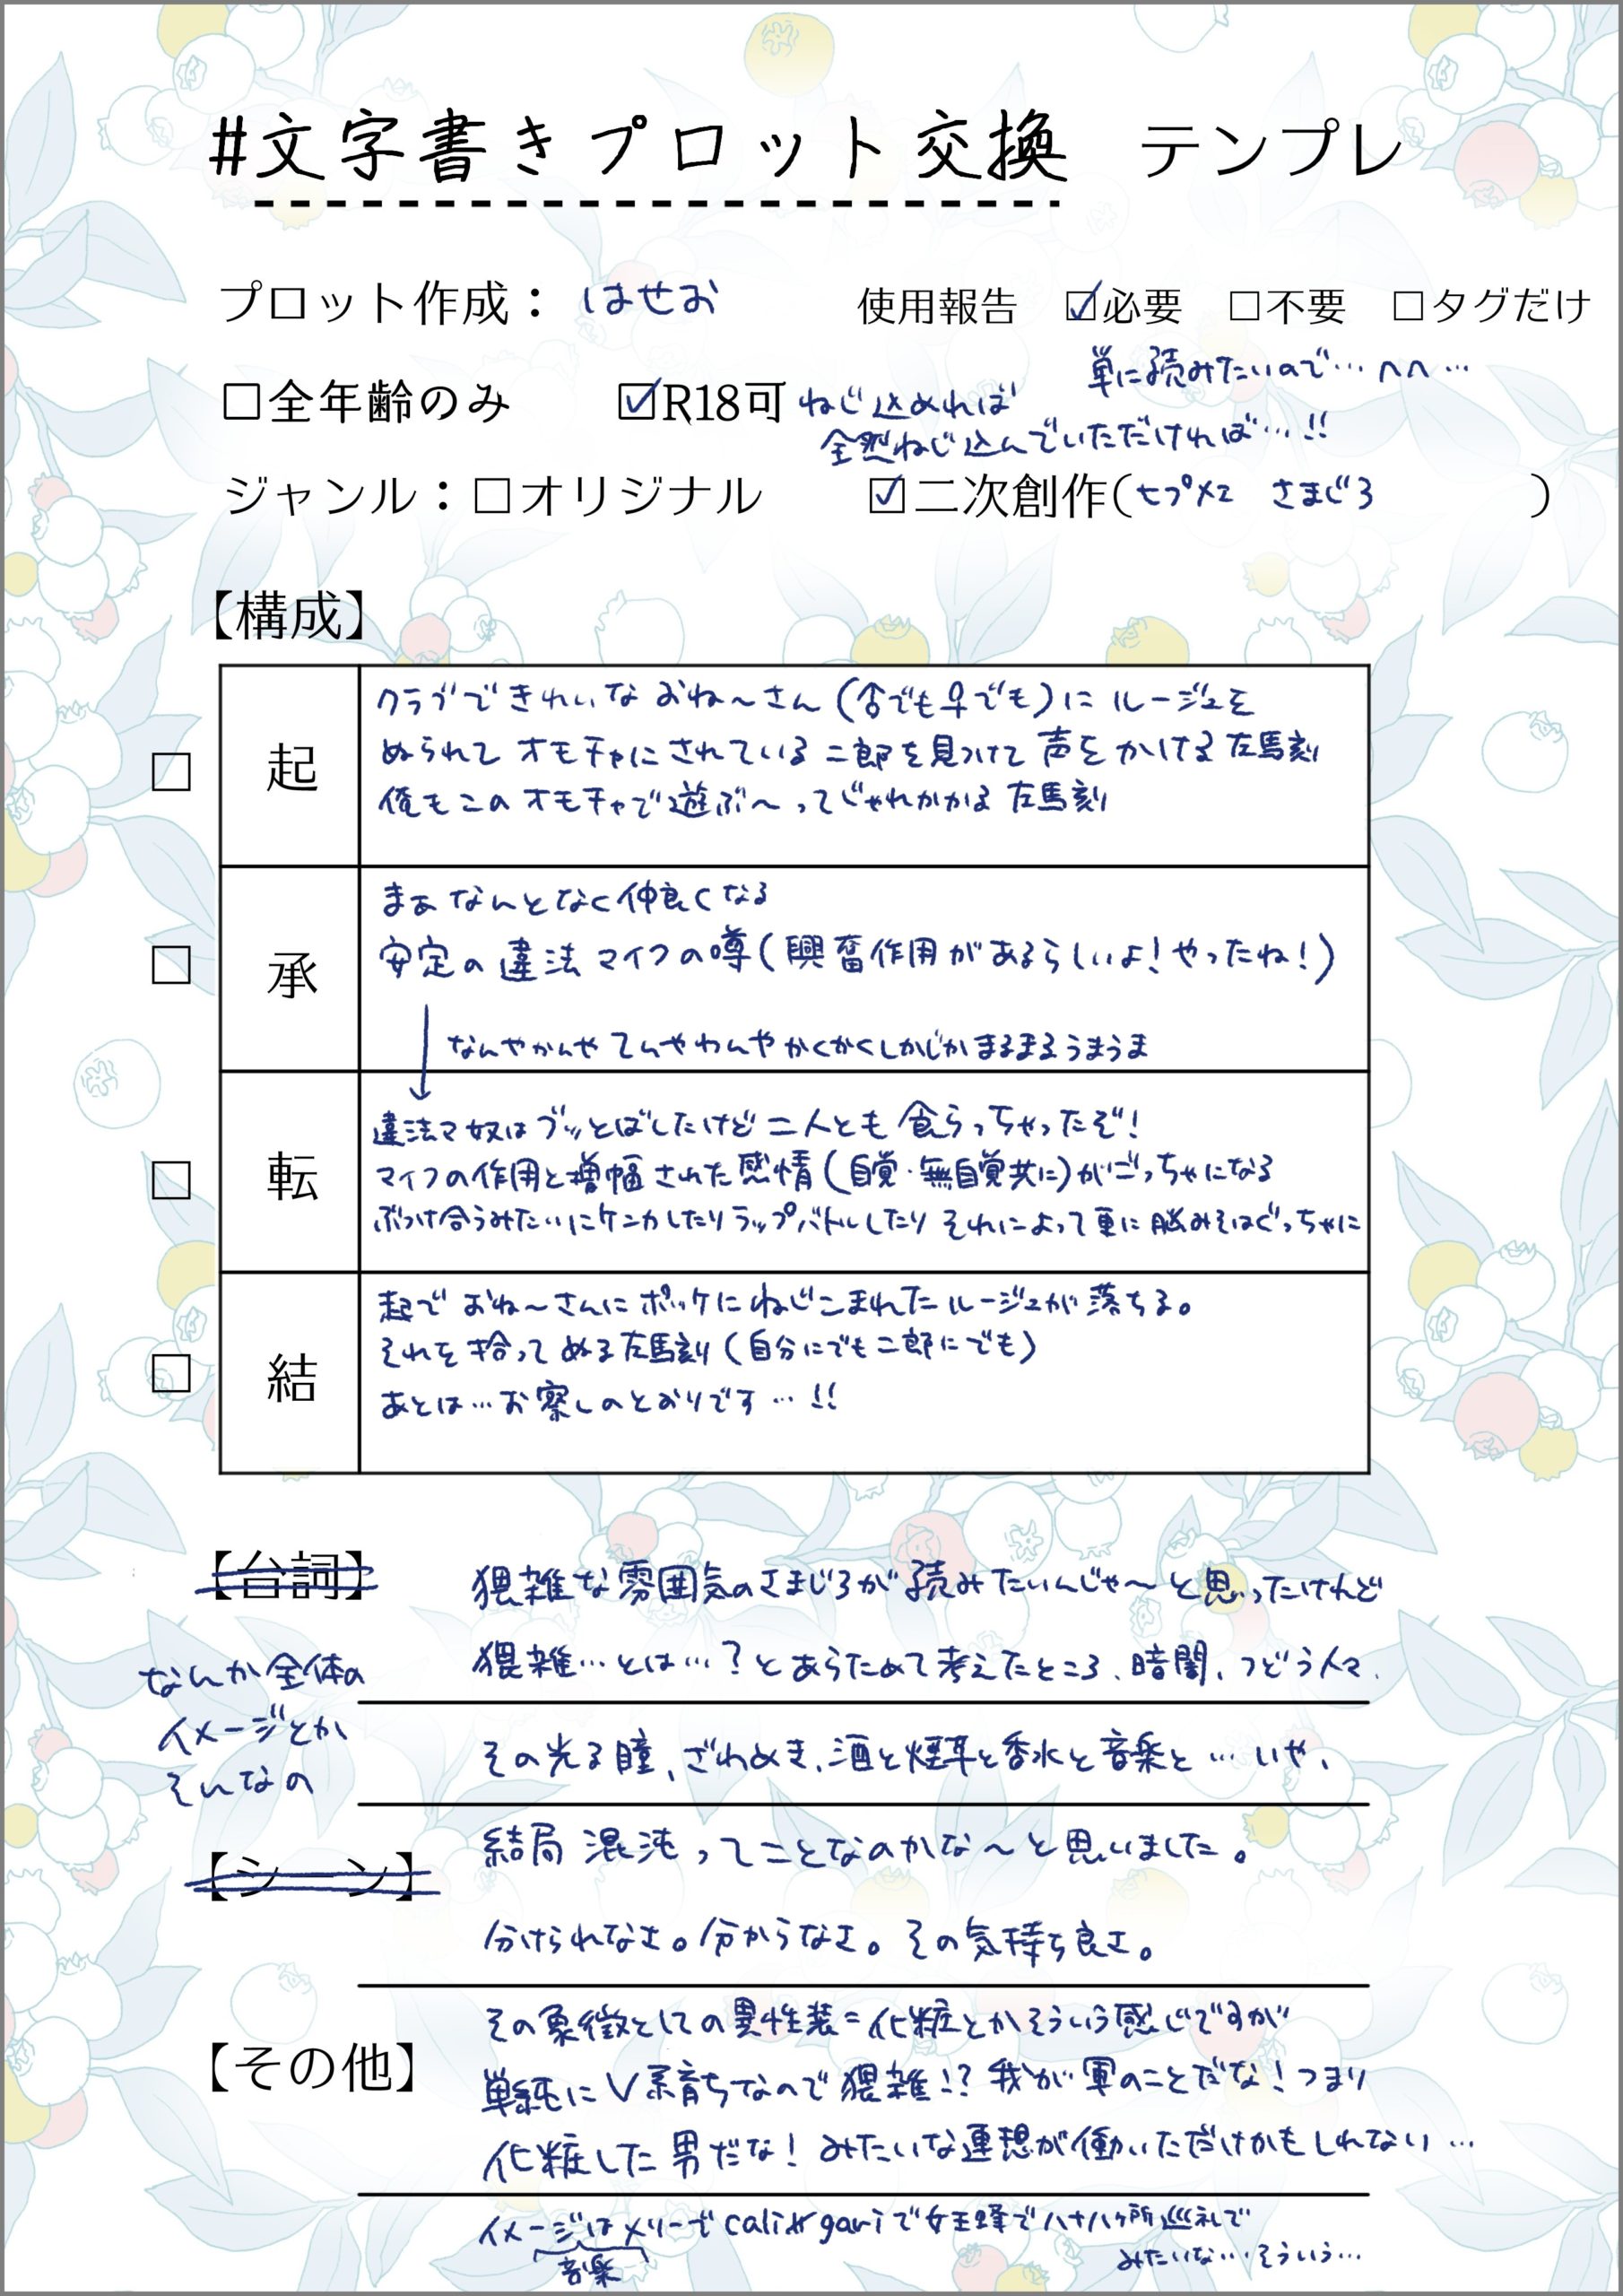 #文字書きプロット交換 テンプレ
プロット作成： はせお 使用報告 ☑必要 □不要 □タグだけ
単に読みたいので…へへ…
□全年齢のみ ☑R18可 ねじ込めれば
全然ねじ込んでいただければ…!!
ジャンル：□オリジナル ☑二次創作(ヒプマイ さまじろ )
【構成】
□ 起
クラブできれいなおね〜さん(♂でも♀でも)にルージュを
ぬられてオモチャにされている二郎を見つけて声をかける左馬刻
俺もこのオモチャで遊ぶ〜ってじゃれかかる左馬刻
□ 承
まぁなんとなく仲良くなる
安定の違法マイクの噂(興奮作用があるらしいよ!やったね!)
↓ なんやかんやてんやわんやかくかくしかじかまるまるうまうま
□ 転
違法マ奴はブッとばしたけど二人とも食らっちゃったぞ!
マイクの作用と増幅された感情(自覚・無自覚共に)がごっちゃになる
ぶつけ合うみたいにケンカしたりラップバトルしたりそれによって更に脳みそはぐっちゃに
□ 結
起でおね〜さんにポッケにねじこまれたルージュが落ちる。
それを拾ってぬる左馬刻(自分にでも二郎にでも)
あとは…お察しのとおりです…!!
【台詞】
なんか全体の
イメージとか
そんなの
【シーン】
猥雑な雰囲気のさまじろが読みたいんじゃ〜と思ったけれど
猥雑…とは…?とあらためて考えたところ、暗闇、つどう人々、
その光る瞳、ざわめき、酒と煙草と香水と音楽と…いや、
結局混沌ってことなのかな〜と思いました。
分けられなさ。分からなさ。その気持ち良さ。
【その他】
その象徴としての異性装=化粧とかそういう感じですが
単純にV系育ちなので猥雑!?我が軍のことだな!つまり
化粧した男だな!みたいな連想が働いただけかもしれない…
イメージはメリーでcali≠gariで女王蜂で八十八ヶ所巡礼で
音楽
みたいな…そういう…